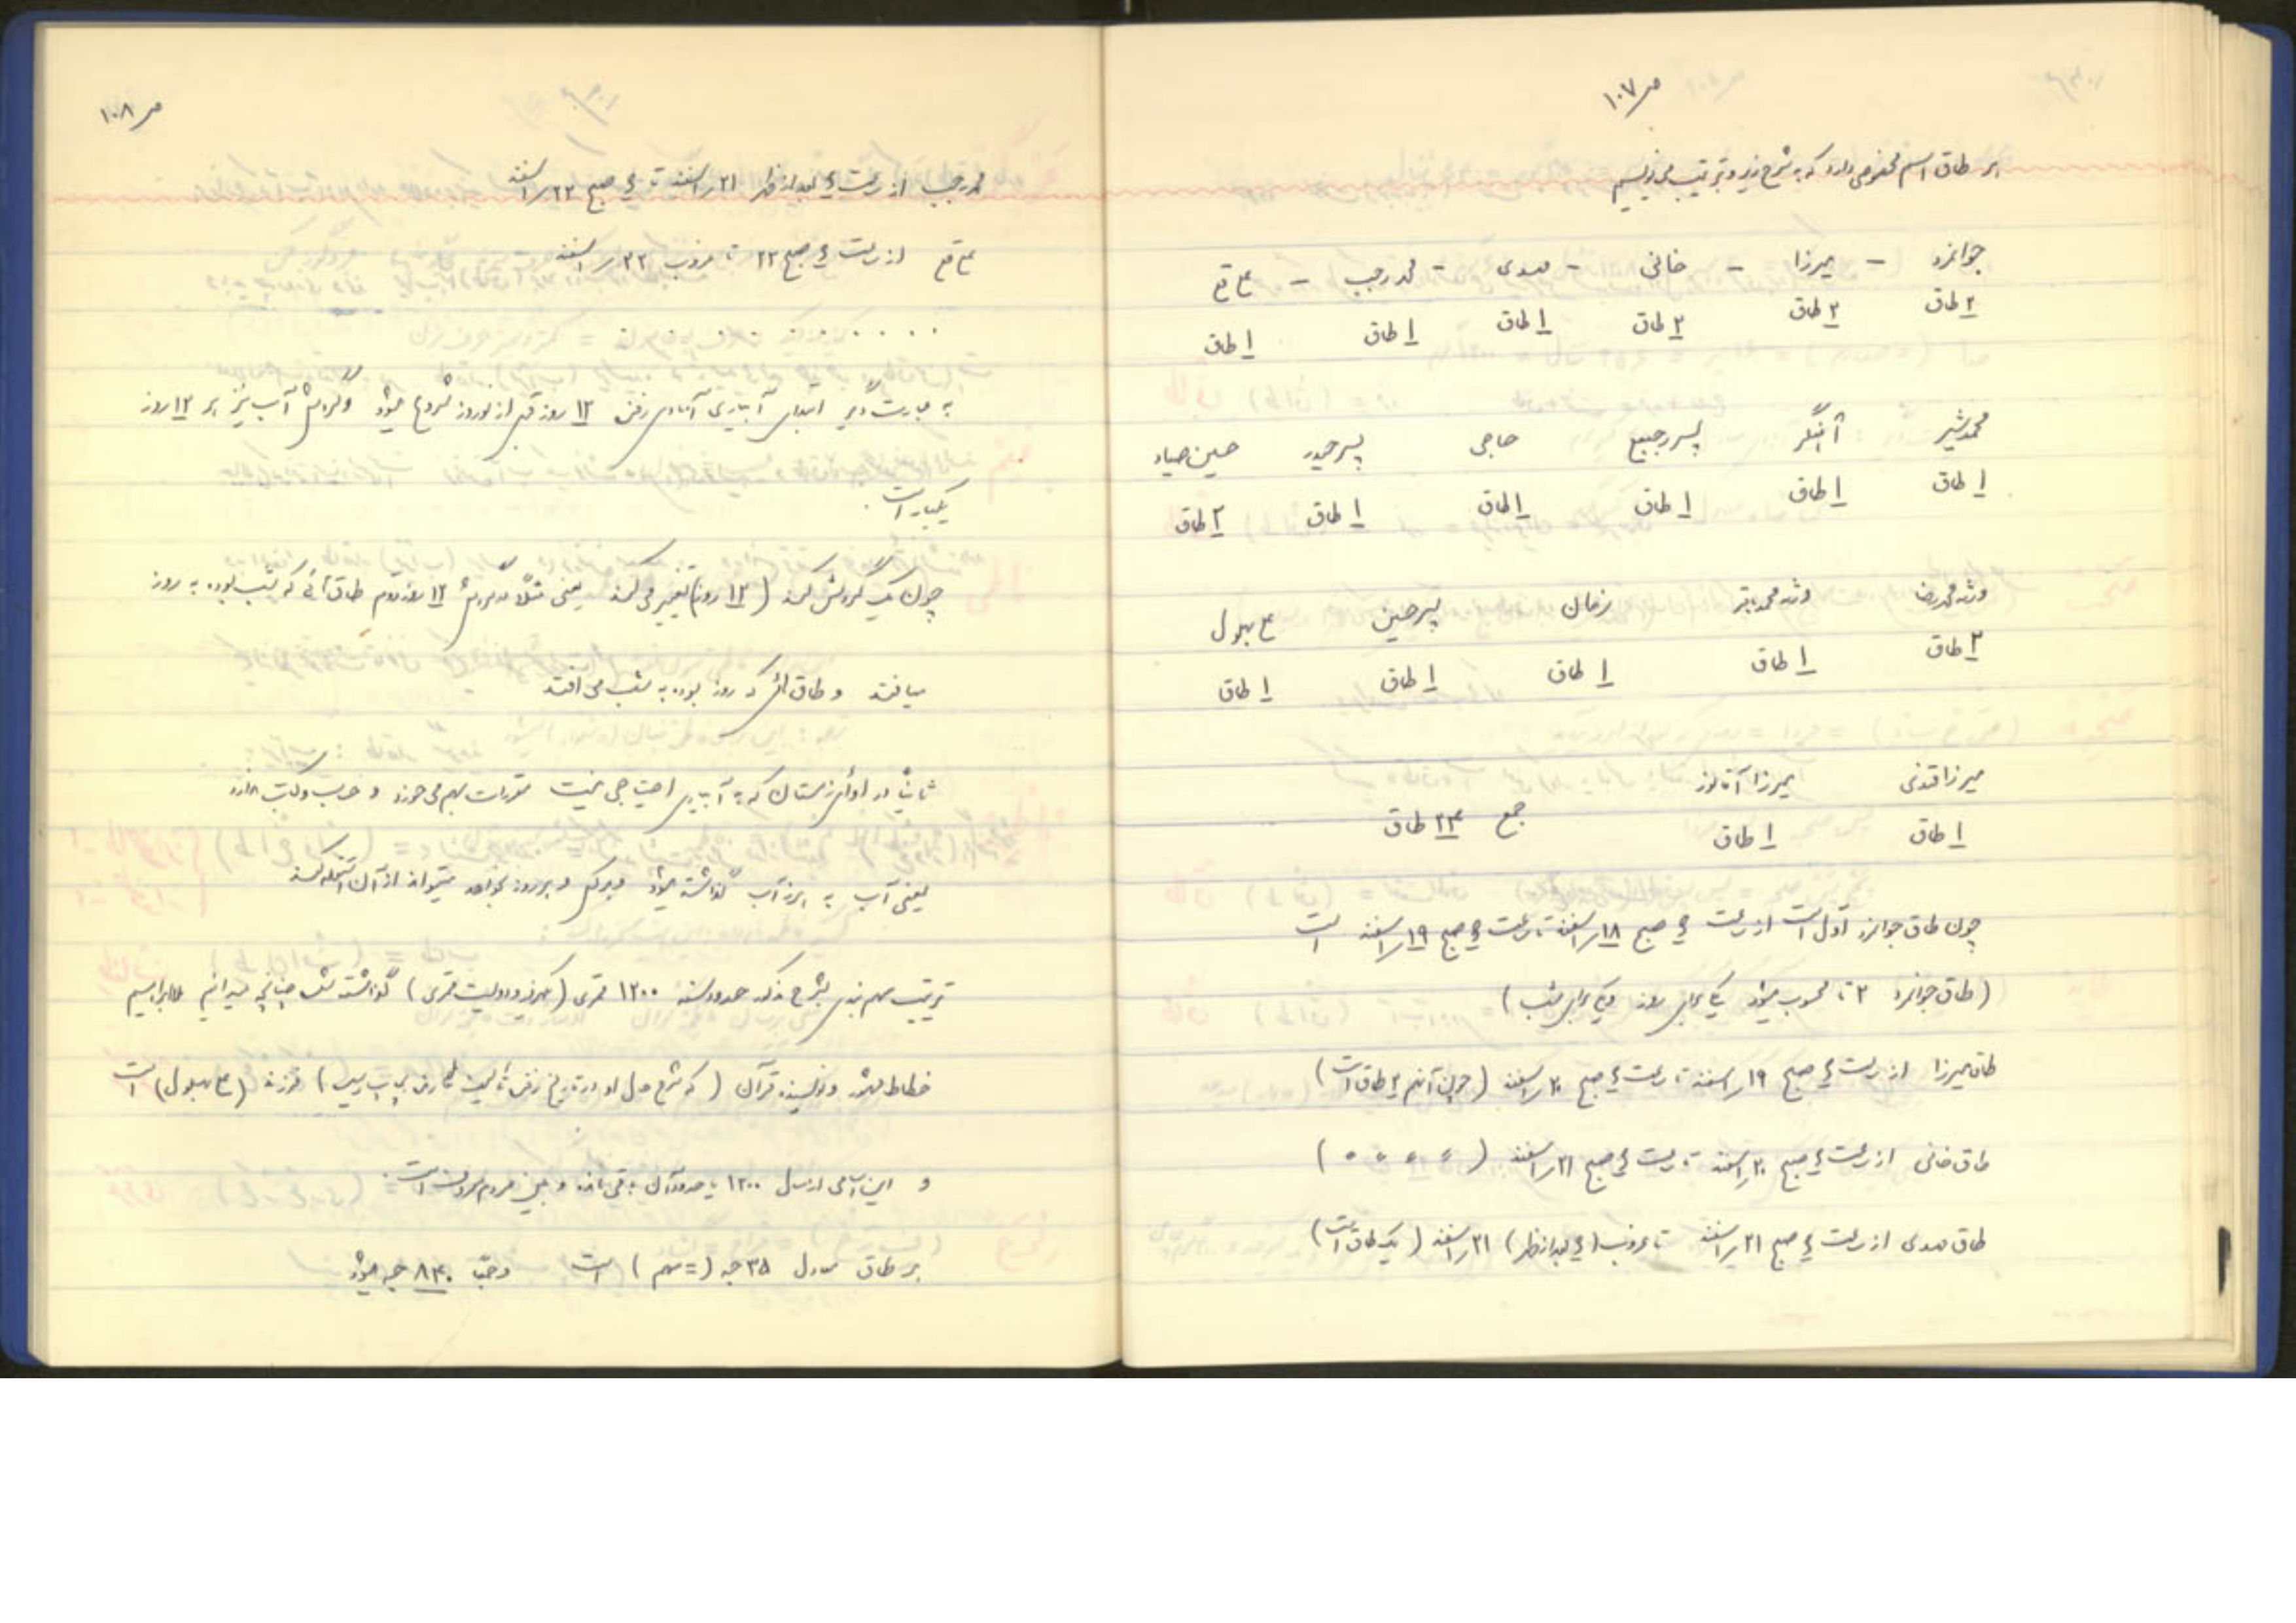 ص ۱۰۷
هر طاق اسم مخصوص دارد که به شرح زیر و ترتیب می نویسیم
جوانمرد – میرزا – خانی – مهدی – محمد رجب – ع قع
۲ طاق ۲ طاق ۲ طاق ۱ طاق ۱ طاق ۱ طاق
محمد شیر آهنگر پسر رجبع حاجی پسر حیدر حسین صیاد
۱ طاق ۱ طاق ۱ طاق ۱ طاق ۱ طاق ۲ طاق
ورثه محمدرضا ورثه محمد باقر زمان پسر حسین ع بهلول
۲ طاق ۱ طاق ۱ طاق ۱ طاق ۱ طاق
میرزا میرزا آقا
۱ طاق ۱ طاق جمع ۲۴ طاق
چون طاق جوانمرد اول است از ساعت ۶ صبح ۱۸ اسفند تا ساعت ۶ صبح ۱۹ اسفند است
(طاق جوانمرد ۲ تا محسوب میشود یکی برای روز و یکی برای شب)
طاق میرزا از ساعت ۶ صبح ۱۹ اسفند تا ساعت ۶ صبح ۲۰ اسفند (چون آنهم ۲ طاق است)
طاق خانی از ساعت ۶ صبح ۲۰ اسفند تا ساعت ۶ صبح ۲۱ اسفند ( 〃 〃 〃 〃 )
طاق مهدی از ساعت ۶ صبح ۲۱ اسفند تا غروب (۶ بعدازظهر) ۲۱ اسفند (یک طاق است)
ص ۱۰۸
محمد رجب از ساعت ۶ بعدازظهر ۲۱ اسفند تا ۶ صبح ۲۲ اسفند
ع قع از ساعت ۶ صبح ۲۲ تا غروب ۲۲ اسفند
. . . . .
به عبارت دیگر ابتدای آبیاری آبادی رفن ۱۲ روز قبل از نوروز شروع میشود و گردش آب نیز هر ۱۲ روز
یکبار است.
چون یک گردش کرد (۱۲ روز) تغییر می کند یعنی مثلاً در گردش ۱۲ روز دوم طاق هائی که شب بوده به روز
میافتد و طاق هائی که روز بوده به شب می افتد
ثانیاً در اوائل زمستان که به آبیاری احتیاجی نیست مقررات بهم می خورد و حساب و کتاب ندارد
یعنی آب به هرز آب گذاشته میشود و هر کس و هر روز بخواهد میتواند از آن استفاده کند
ترتیب سهم بندی بشرح مذکور حدود سنه ۱۲۰۰ قمری (یکهزار و دویست قمری) گذاشته شده چنانچه میدانیم ملا ابراهیم
خطاط مشهور و نویسنده قرآن (که شرح حال او در تاریخ رفن تألیف) فرزند (ع بهلول) است
و این اسامی از سال ۱۲۰۰ یا حدود آن باقی مانده و بین مردم معروف است.
هر طاق معادل ۳۵ حبه (= سهم) است و جمعاً ۸۴۰ حبه میشود